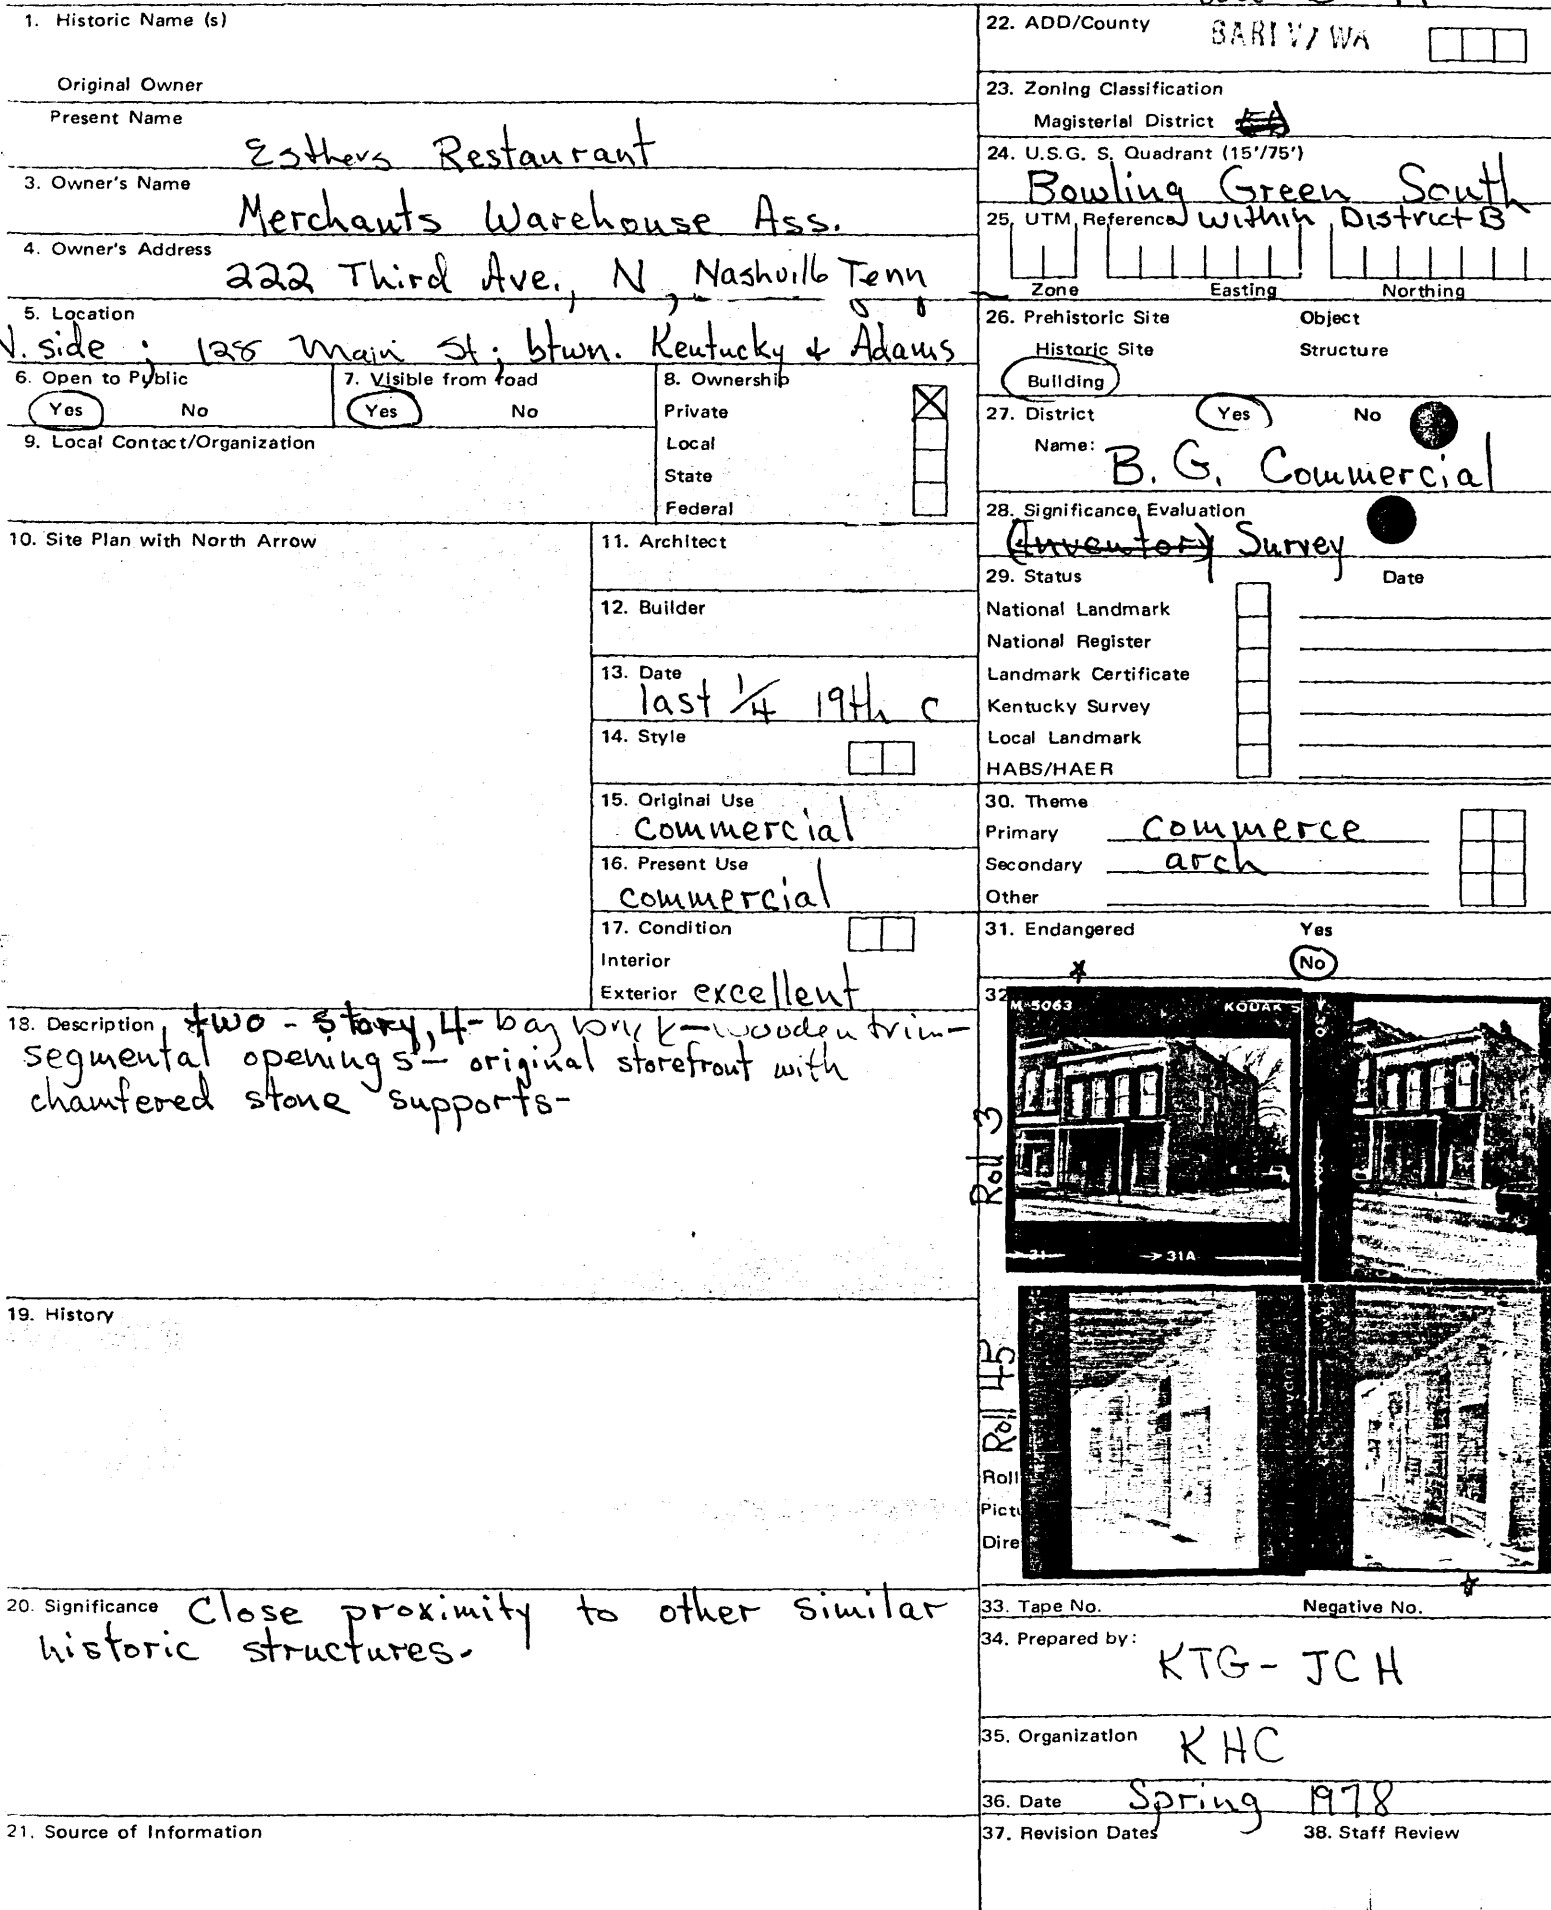 1. Historic Name (s)
Original Owner
Present Name
Esthers Restaurant
3. Owner's Name
Merchants Warehouse Ass.
4. Owner's Address
222 Third Ave., N, Nashville Tenn
5. Location
N. side ; 128 Main St; btwn. Kentucky & Adams
6. Open to Public
Yes No
7. Visible from road
Yes No
8. Ownership
Private
Local
State
Federal
9. Local Contact/Organization
10. Site Plan with North Arrow
11. Architect
12. Builder
13. Date
last 1/4 19th c
14. Style
15. Original Use
commercial
16. Present Use
commercial
17. Condition
Interior
Exterior excellent
18. Description two-story, 4-bay brick-wooden trim-
segmental openings- original storefront with
chamfered stone supports-
19. History
20. Significance Close proximity to other similar
historic structures.
21. Source of Information
22. ADD/County WA
23. Zoning Classification
Magisterial District
24. U.S.G. S. Quadrant (15'/75')
Bowling Green South
25. UTM Reference within District B
Zone Easting Northing
26. Prehistoric Site Object
Historic Site Structure
Building
27. District Yes No
Name: B. G. Commercial
28. Significance Evaluation
(Inventory) Survey
29. Status Date
National Landmark
National Register
Landmark Certificate
Kentucky Survey
Local Landmark
HABS/HAER
30. Theme
Primary commerce
Secondary arch
Other
31. Endangered Yes
No
32
M-5063 KODAK S
Roll 3
31 → 31A
Roll 45
Roll
Pictu
Dire
33. Tape No. Negative No.
34. Prepared by:
KTG- JCH
35. Organization KHC
36. Date Spring 1978
37. Revision Dates 38. Staff Review